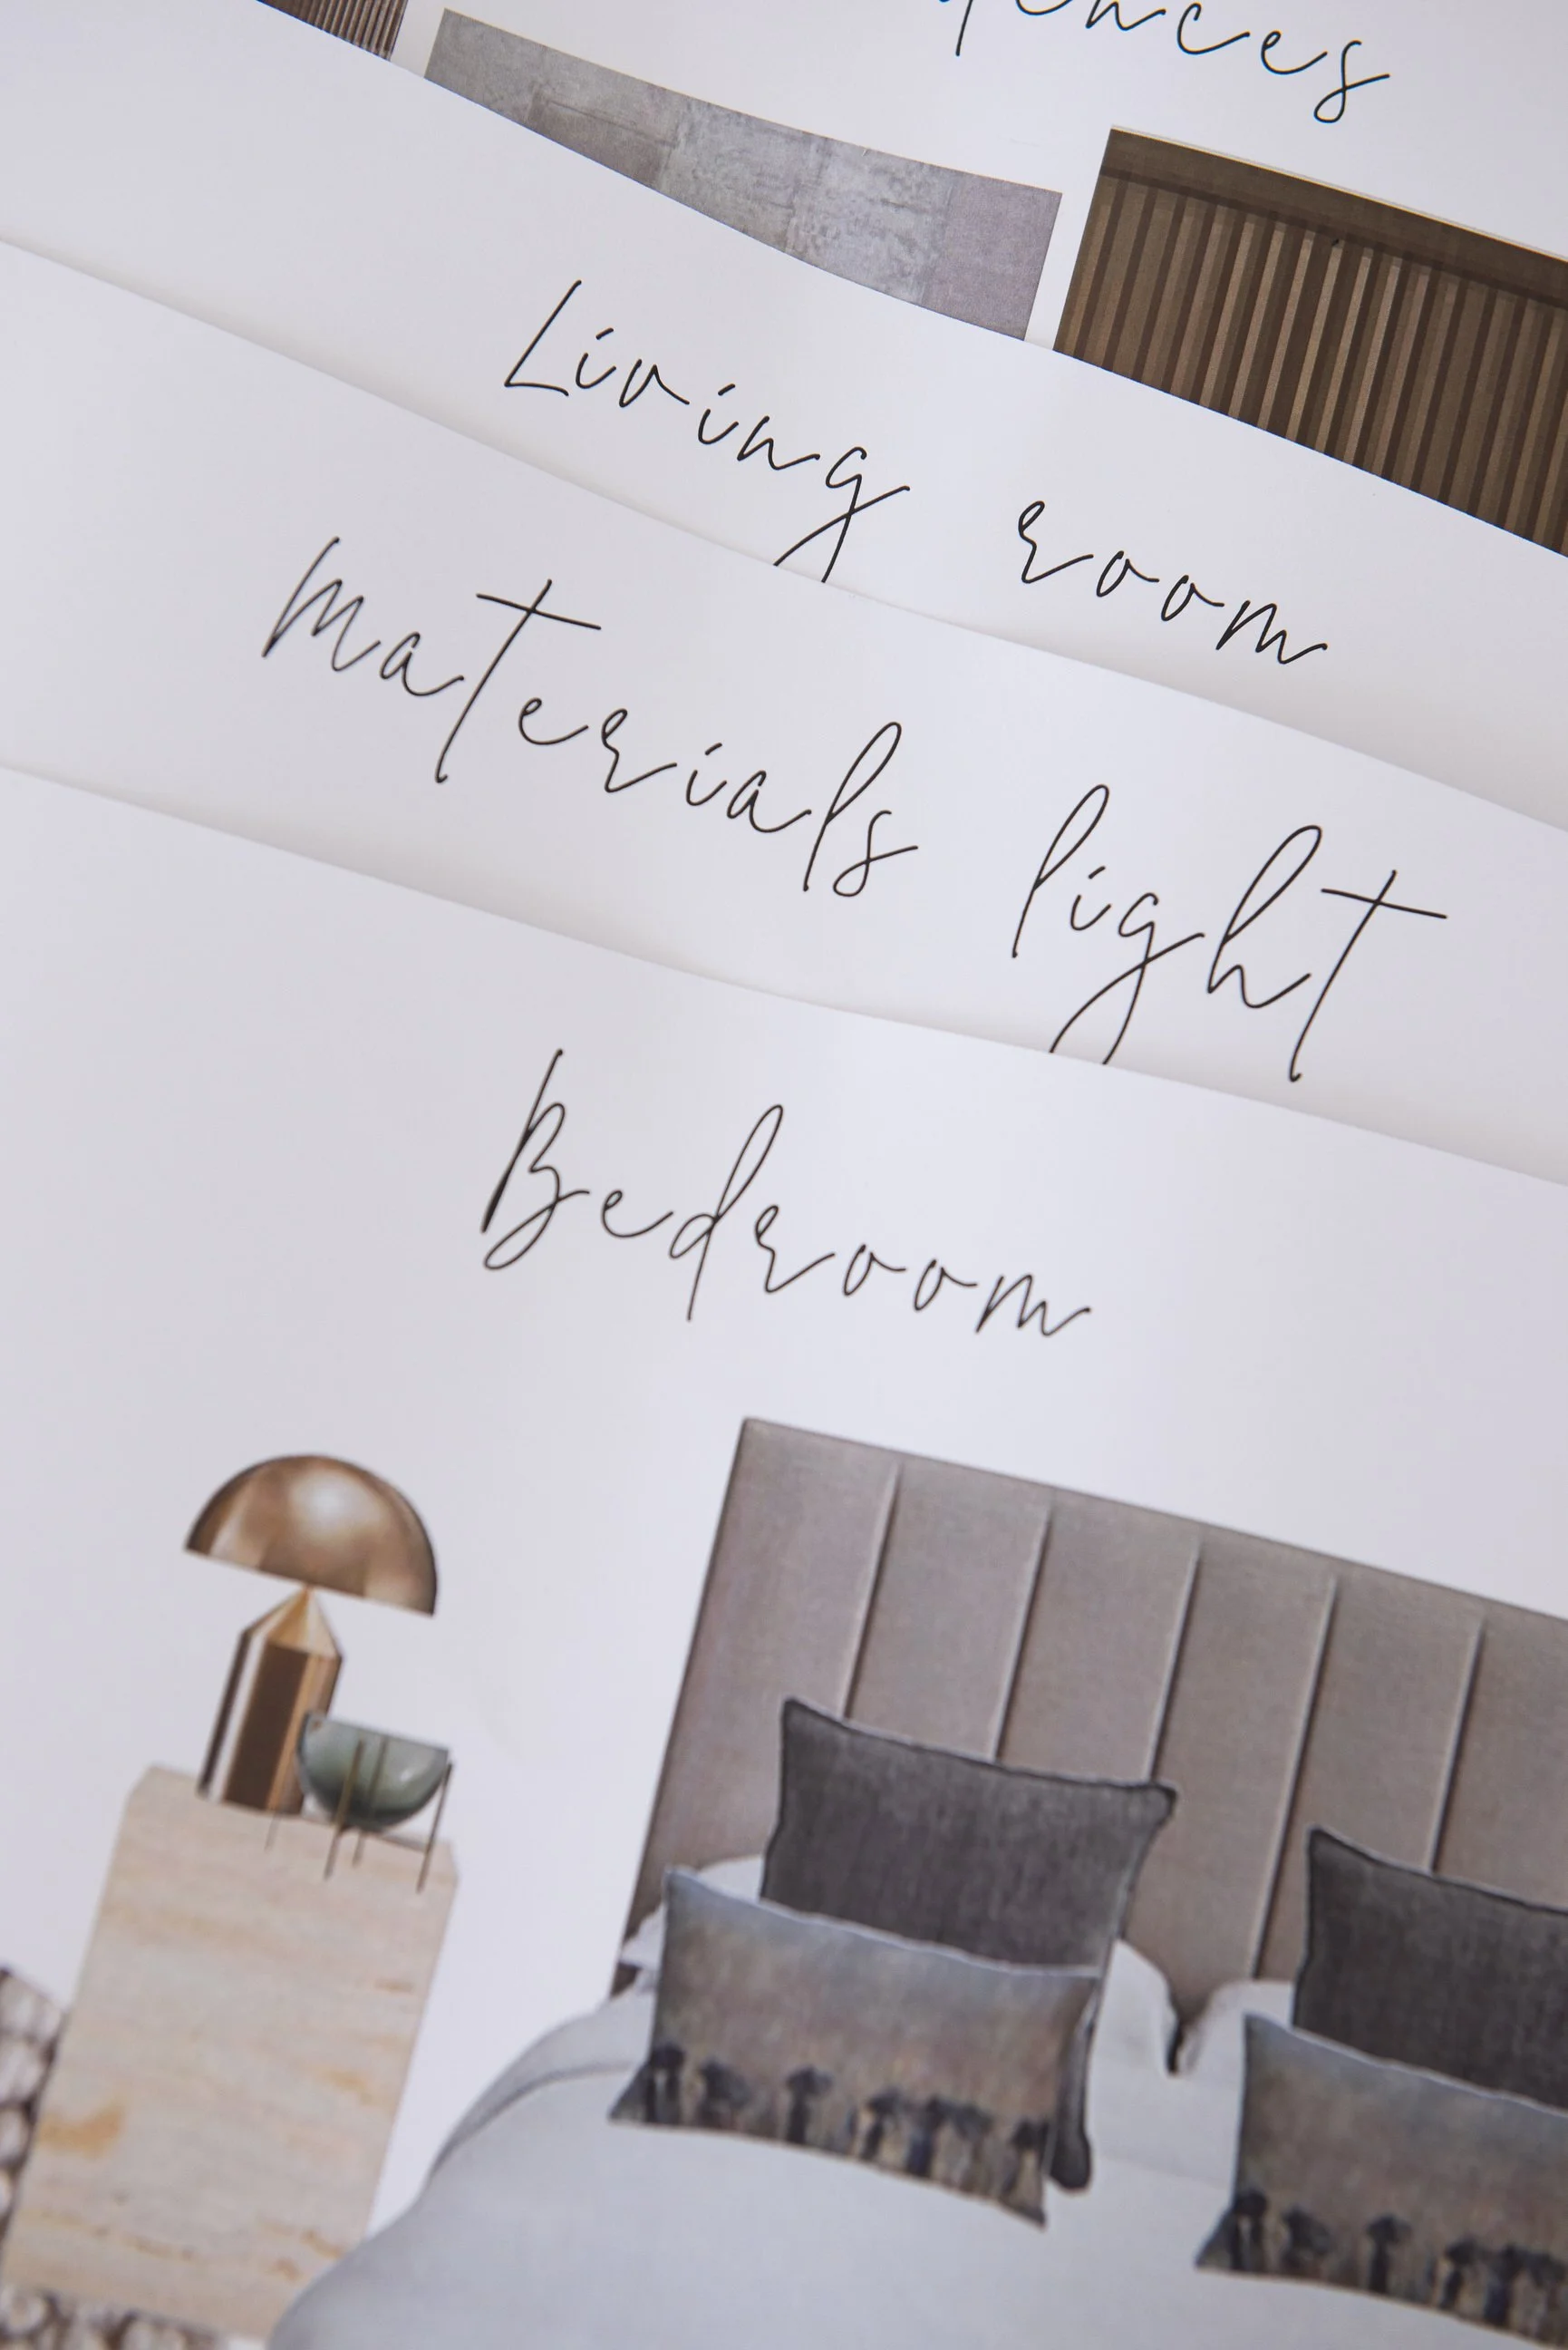 Living room
materials light
Bedroom